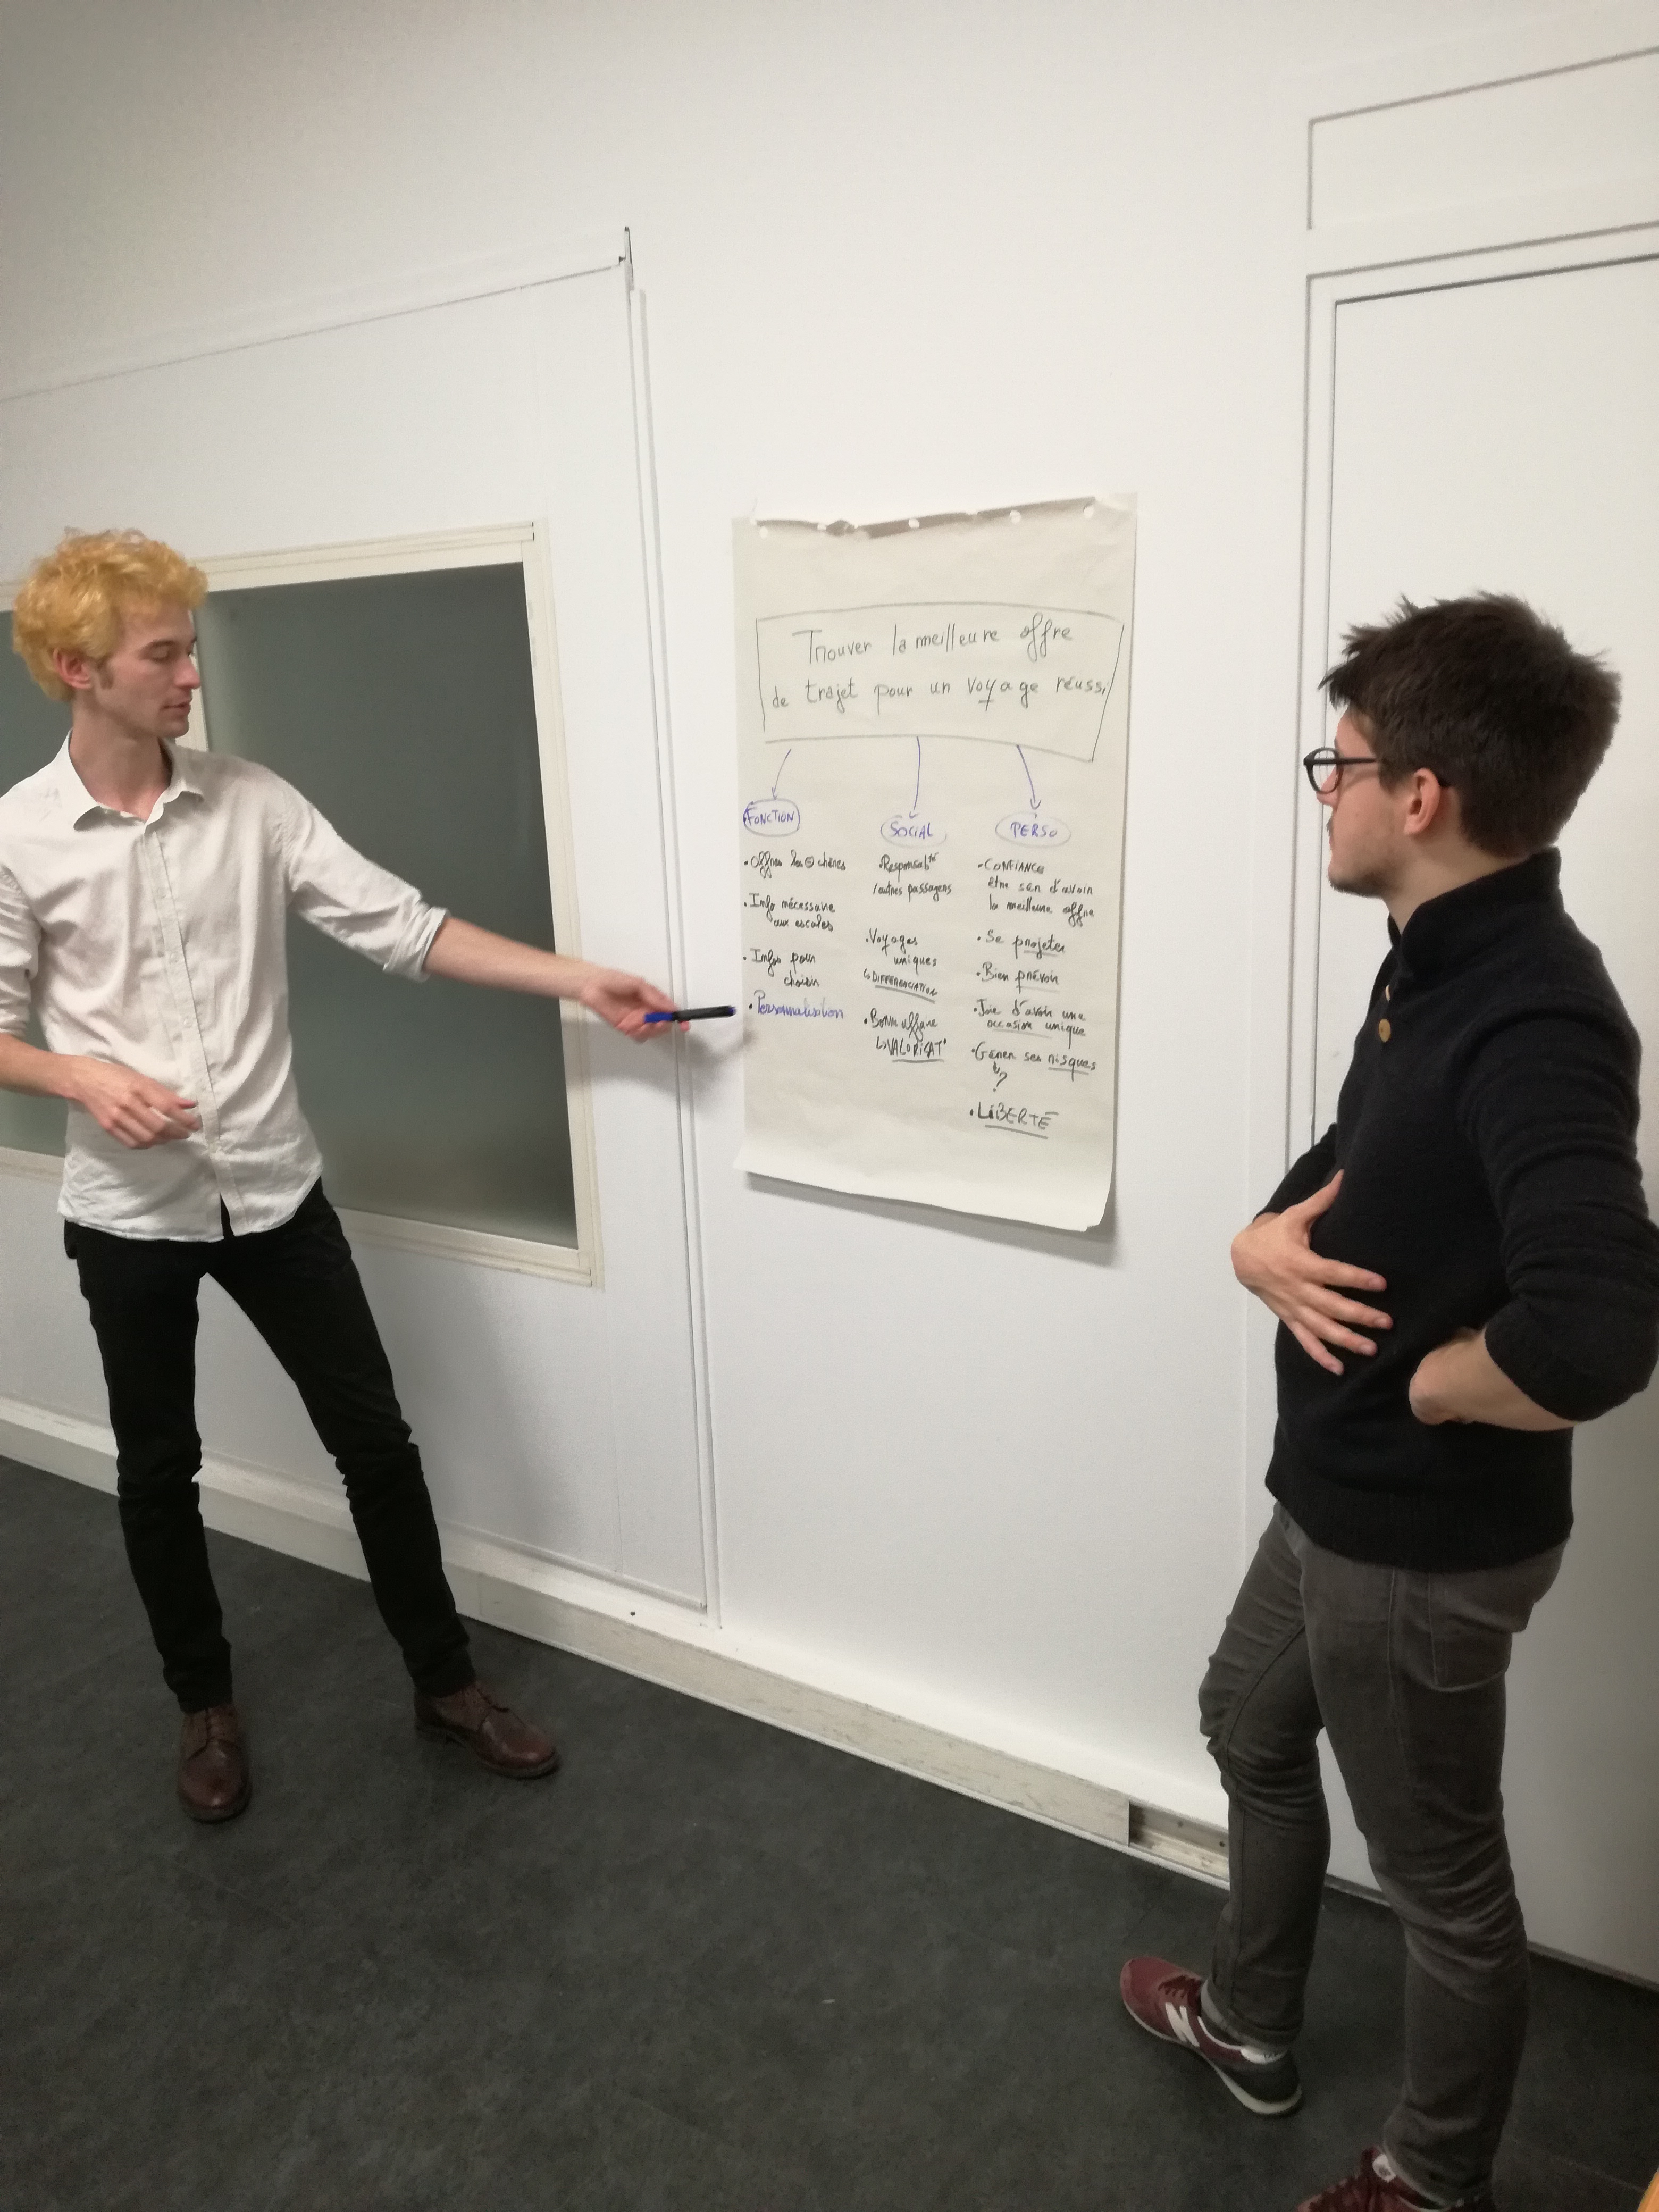 Trouver la meilleure offre
de trajet pour un voyage réussi
FONCTION
• Offres les ⊖ chères
• Info nécessaire
aux escales
• Infos pour
choisir
• Personnalisation
SOCIAL
• Responsabté
/autres passagers
• Voyages
uniques
↳ DIFFERENCIATION
• Bonne affaire
↳ VALORISAT°
PERSO
• CONFIANCE
être sûr d'avoir
la meilleure offre
• Se projeter
• Bien prévoir
• Joie d'avoir une
occasion unique
• Gérer ses risques
↓
?
• LIBERTÉ